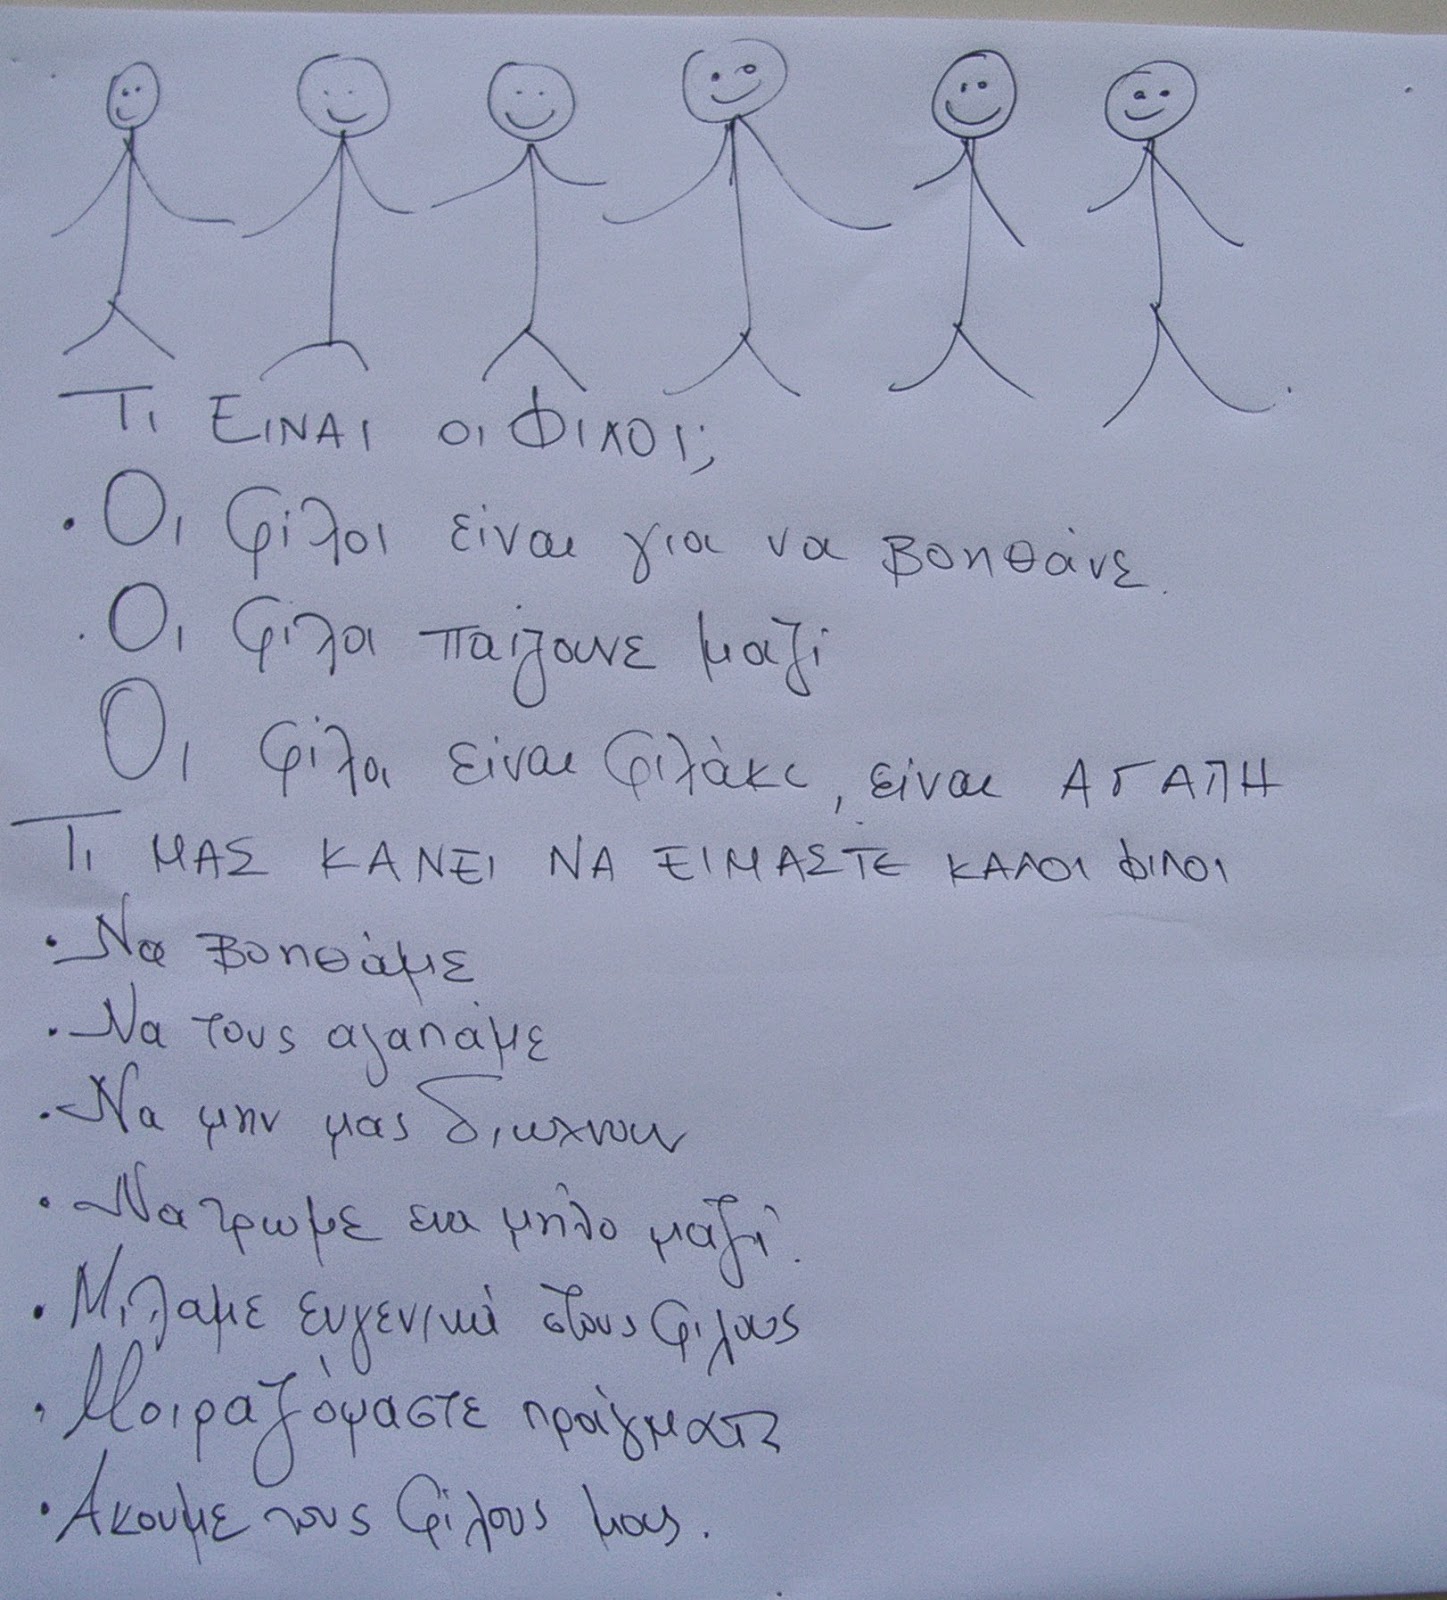 Τι ΕΙΝΑΙ οι ΦΙΛΟΙ;
· Οι φίλοι είναι για να βοηθάνε.
· Οι φίλοι παίζουνε μαζί
Οι φίλοι είναι φιλάκι, είναι ΑΓΑΠΗ
Τι ΜΑΣ ΚΑΝΕΙ ΝΑ ΕΙΜΑΣΤΕ ΚΑΛΟΙ ΦΙΛΟΙ
· Να βοηθάμε
· Να τους αγαπάμε
· Να μην μας διωχνουν
· Να τρωμε ενα μηλο μαζί.
· Μιλαμε ευγενικά στους φιλους
· Μοιραζόμαστε πράγματα
· Ακουμε τους φίλους μας.